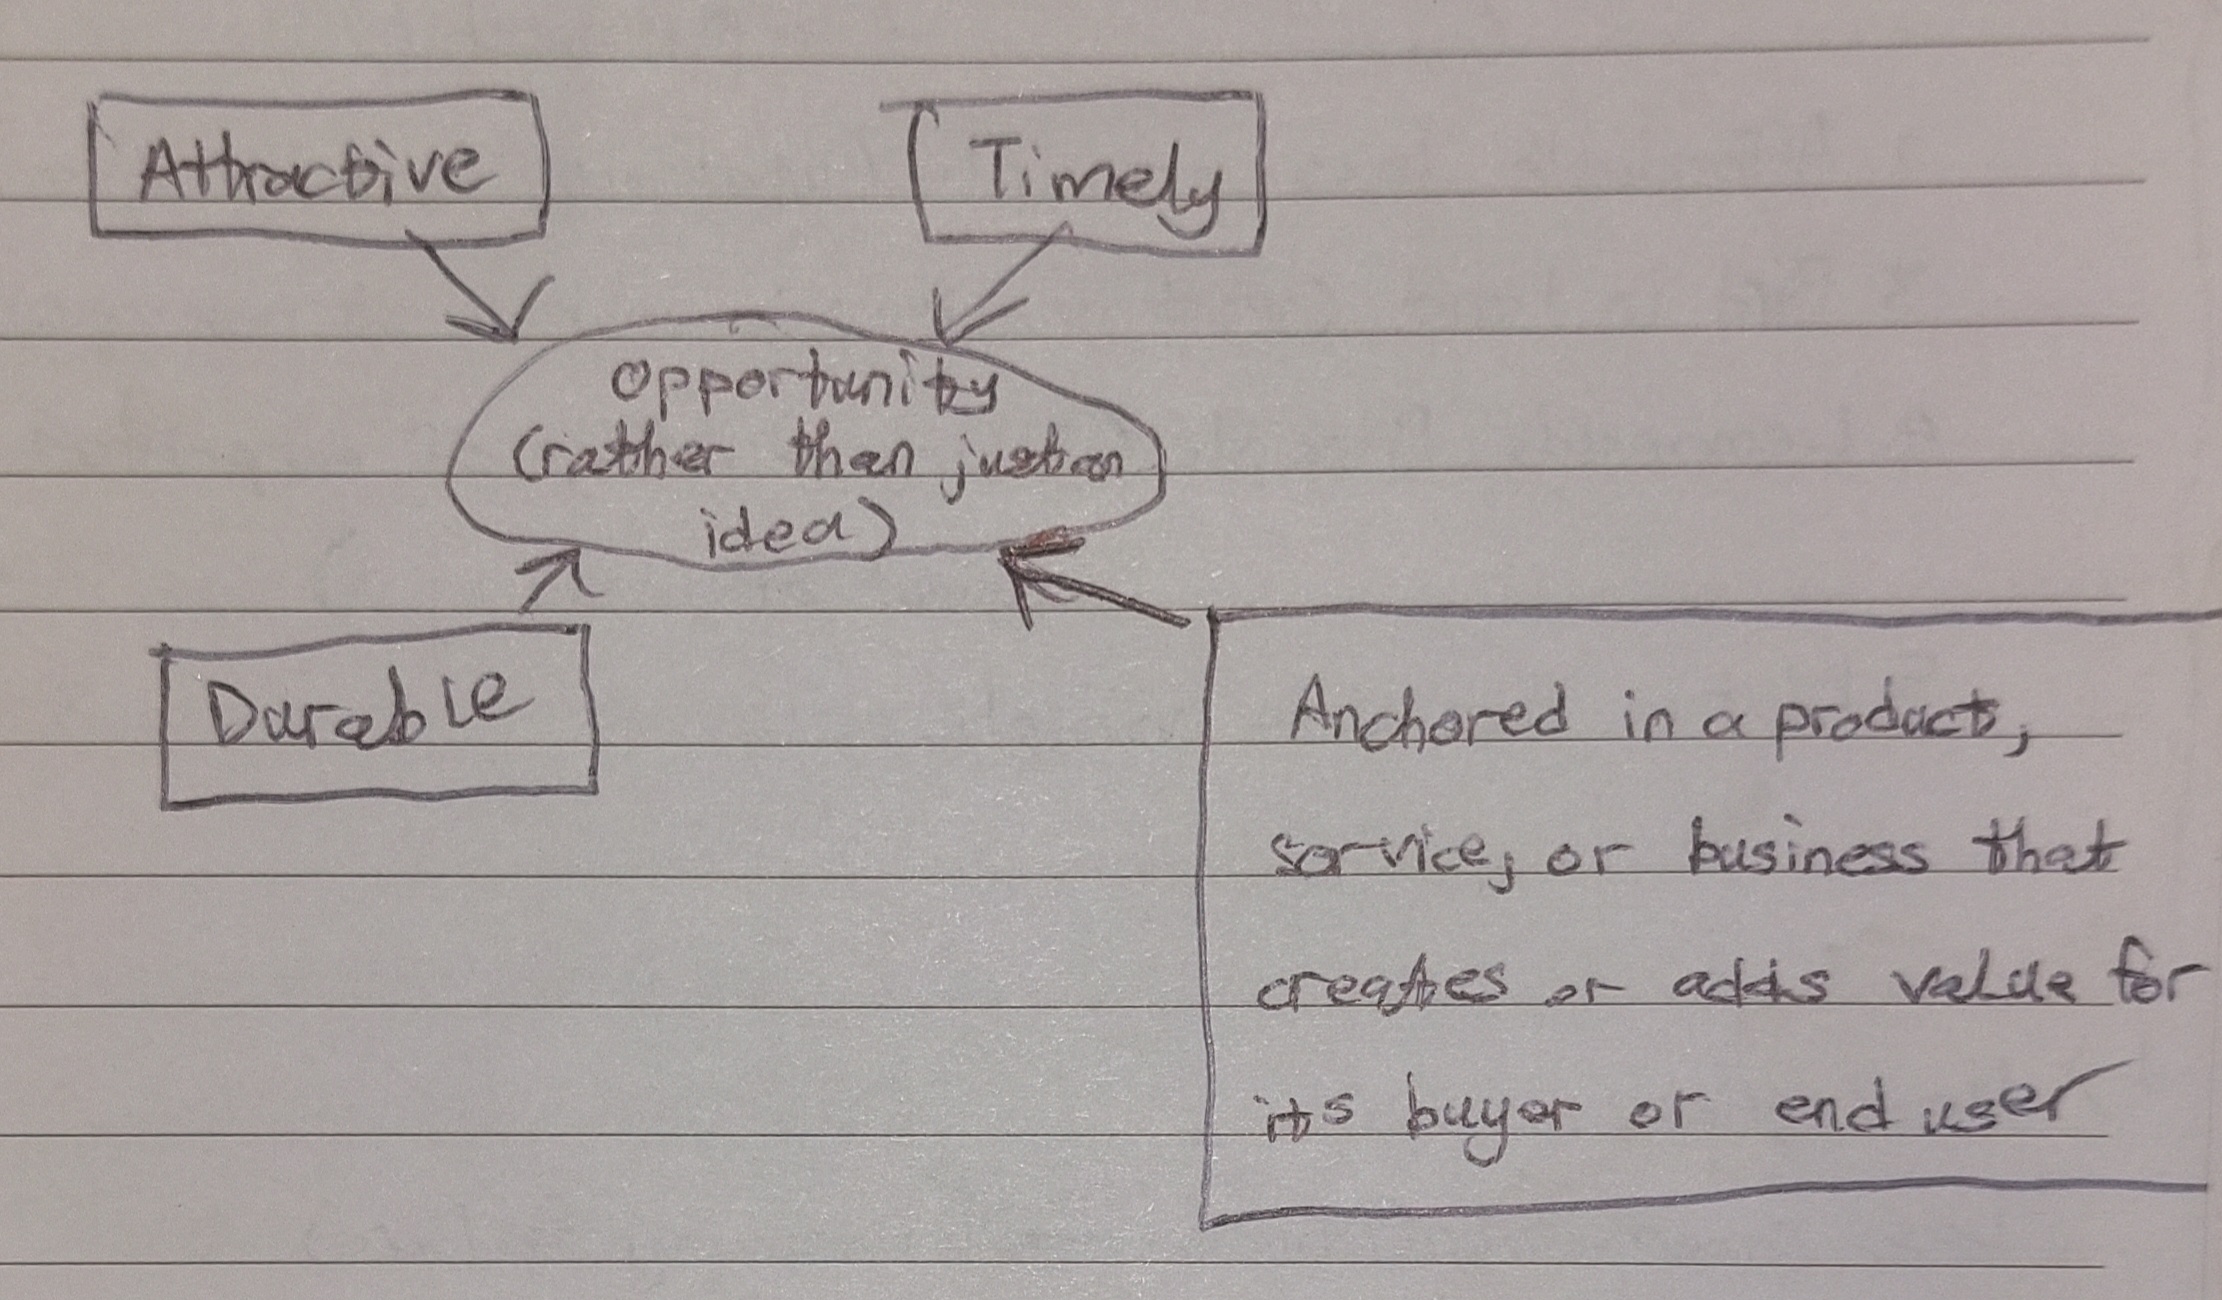 Attractive
Timely
Opportunity
(rather than just an
idea)
Durable
Anchored in a product,
service, or business that
creates or adds value for
its buyer or end user